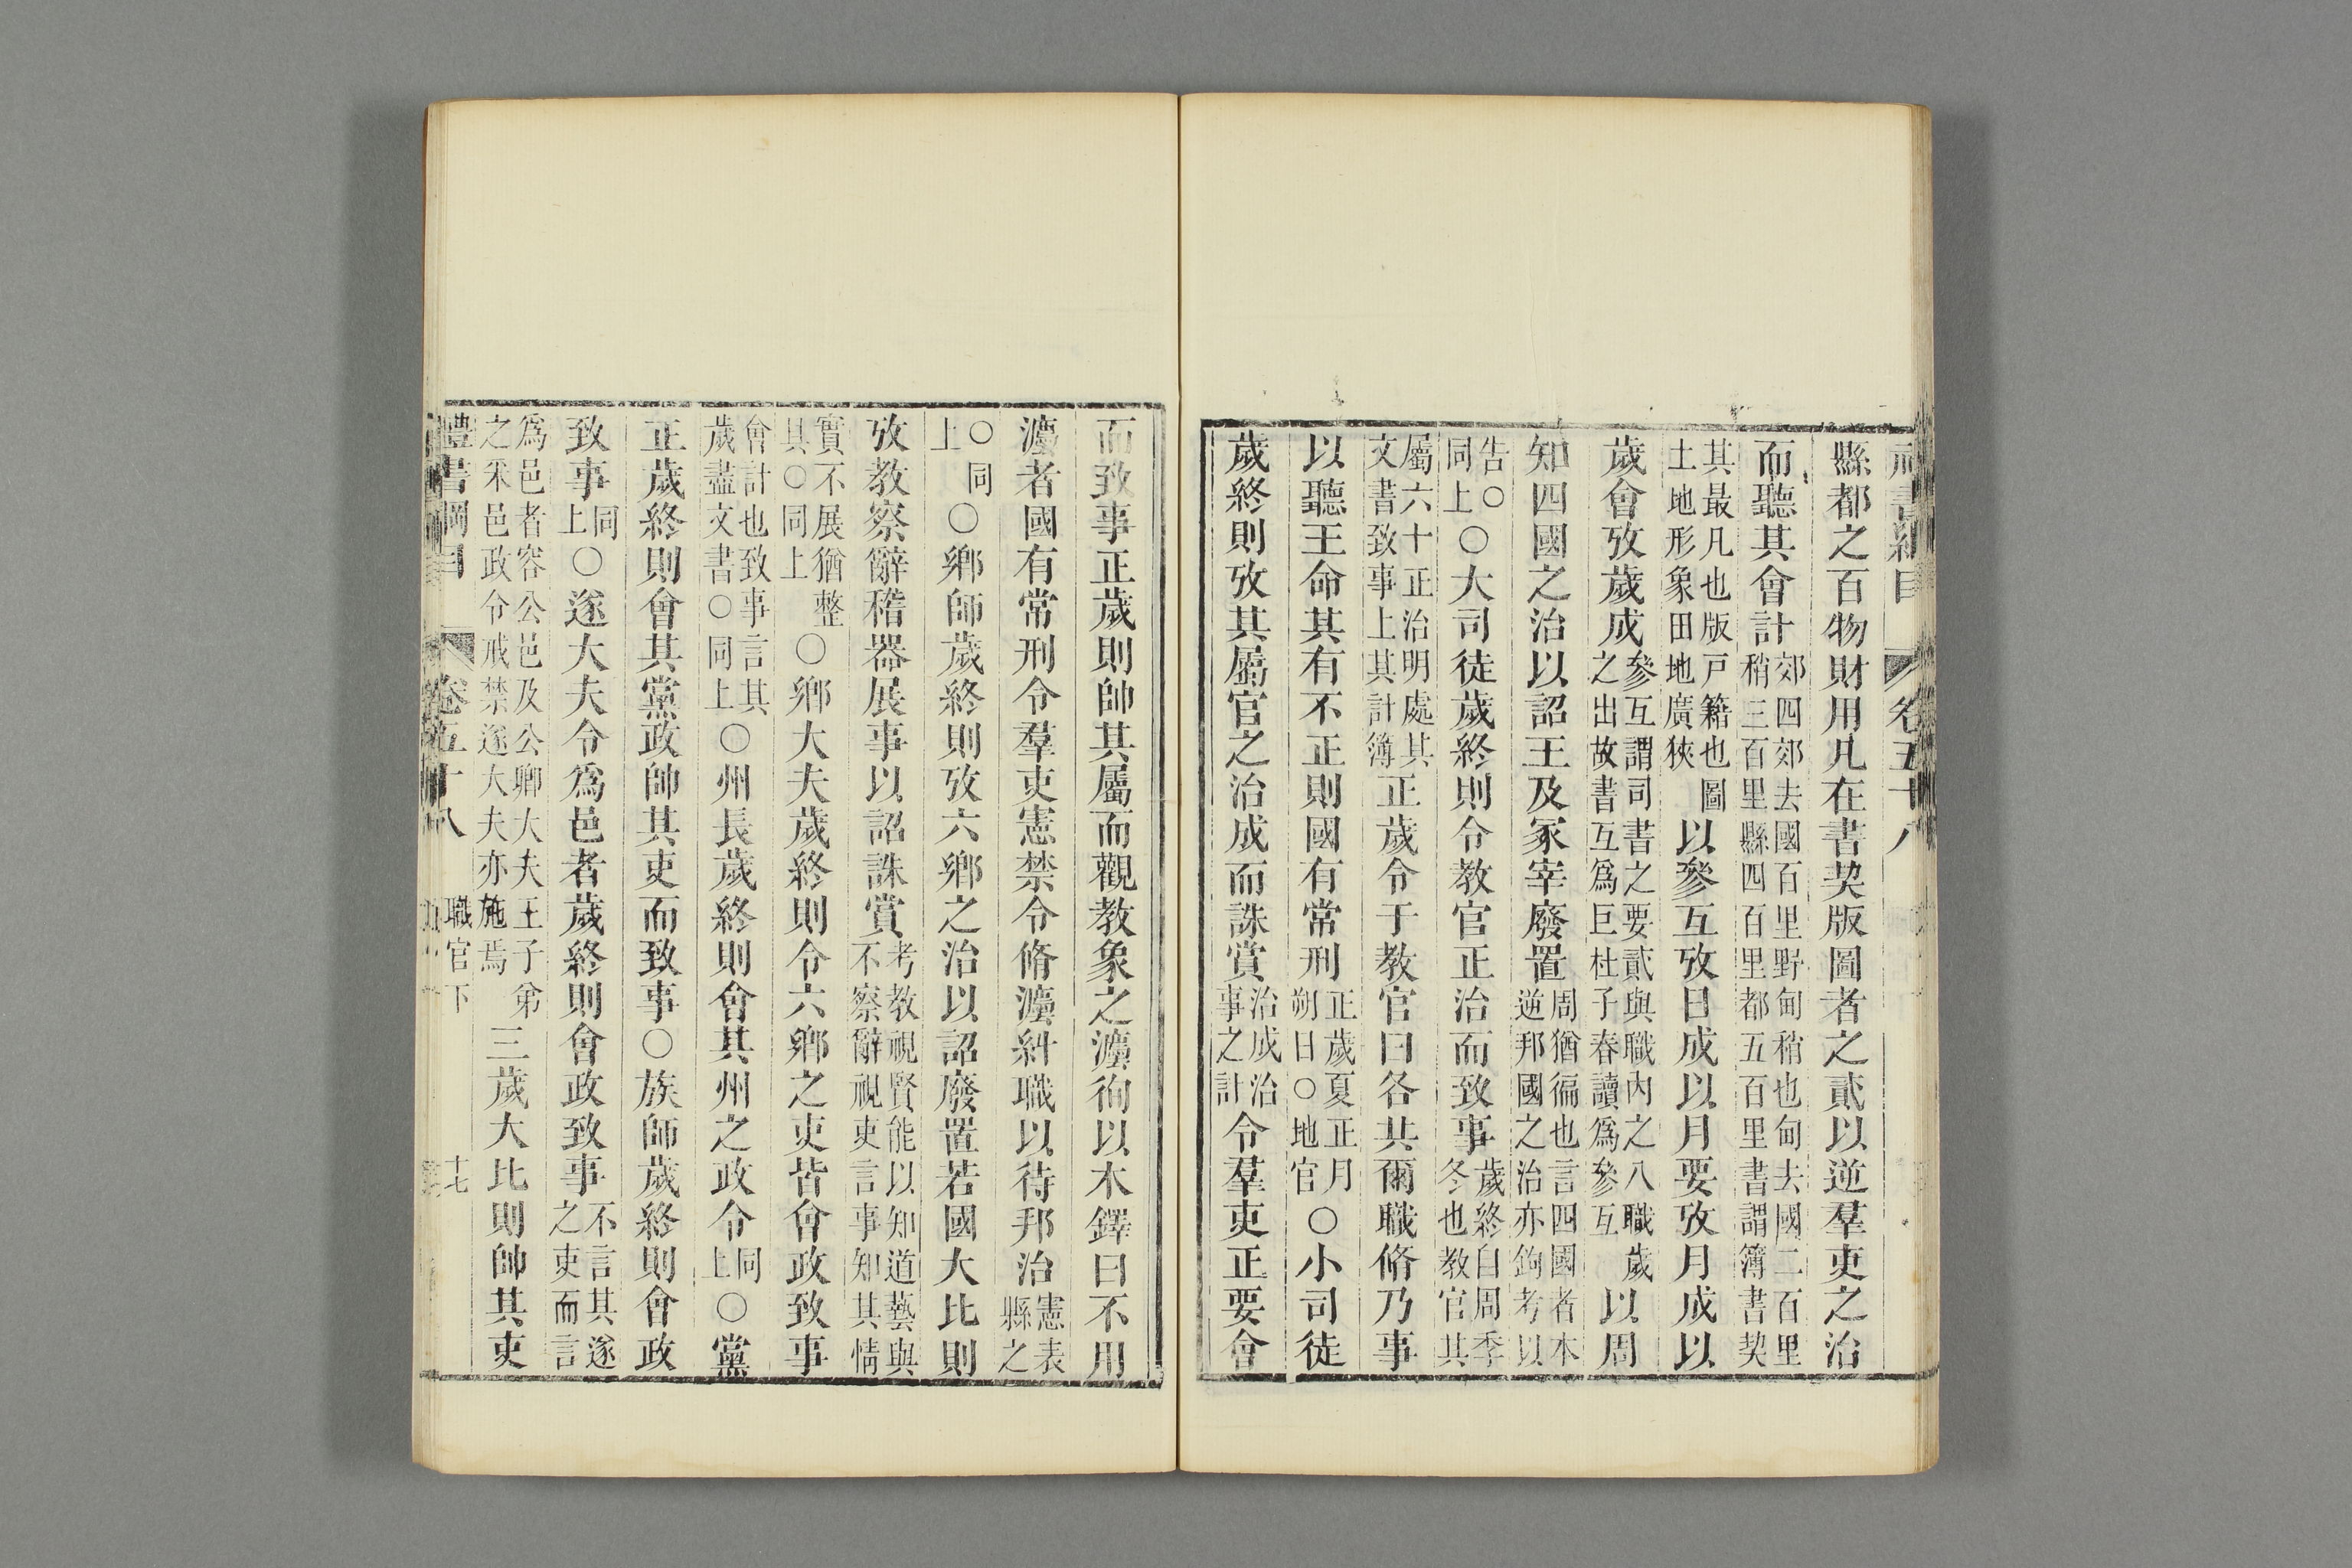 縣都之百物財用凡在書契版圖者之貳以逆羣吏之治
而聽其會計郊四郊去國百里野甸稍也甸去國二百里稍三百里縣四百里都五百里書謂簿書契
其最凡也版戸籍也圖土地形象田地廣狹以參互攷日成以月要攷月成以
歲會攷歲成參互謂司書之要貳與職内之八職歲之出故書互爲巨杜子春讀爲參互以周
知四國之治以詔王及冢宰廢置周猶徧也言四國者本逆邦國之治亦鉤考以
告○同上○大司徒歲終則令教官正治而致事歲終自周季冬也教官其
屬六十正治明處其文書致事上其計簿正歲令于教官曰各共爾職脩乃事
以聽王命其有不正則國有常刑正歲夏正月朔日○地官○小司徒
歲終則攷其屬官之治成而誅賞治成治事之計令羣吏正要會
而致事正歲則帥其屬而觀教象之灋徇以木鐸曰不用
灋者國有常刑令羣吏憲禁令脩灋糾職以待邦治憲表縣之
○同上○鄉師歲終則攷六鄉之治以詔廢置若國大比則
攷教察辭稽器展事以詔誅賞考教視賢能以知道藝與不察辭視吏言事知其情
實不展猶整具○同上○鄉大夫歲終則令六鄉之吏皆會政致事
會計也致事言其歲盡文書○同上○州長歲終則會其州之政令同上○黨
正歲終則會其黨政帥其吏而致事○族師歲終則會政
致事同上○遂大夫令爲邑者歲終則會政致事不言其遂之吏而言
爲邑者容公邑及公卿大夫王子弟之采邑政令戒禁遂大夫亦施焉三歲大比則帥其吏
禮書綱目 卷五十八 職官下 十七